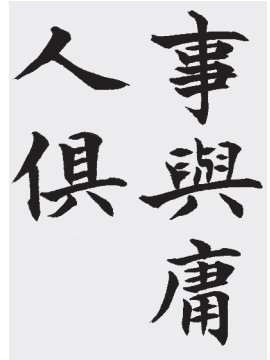 事與庸
人俱